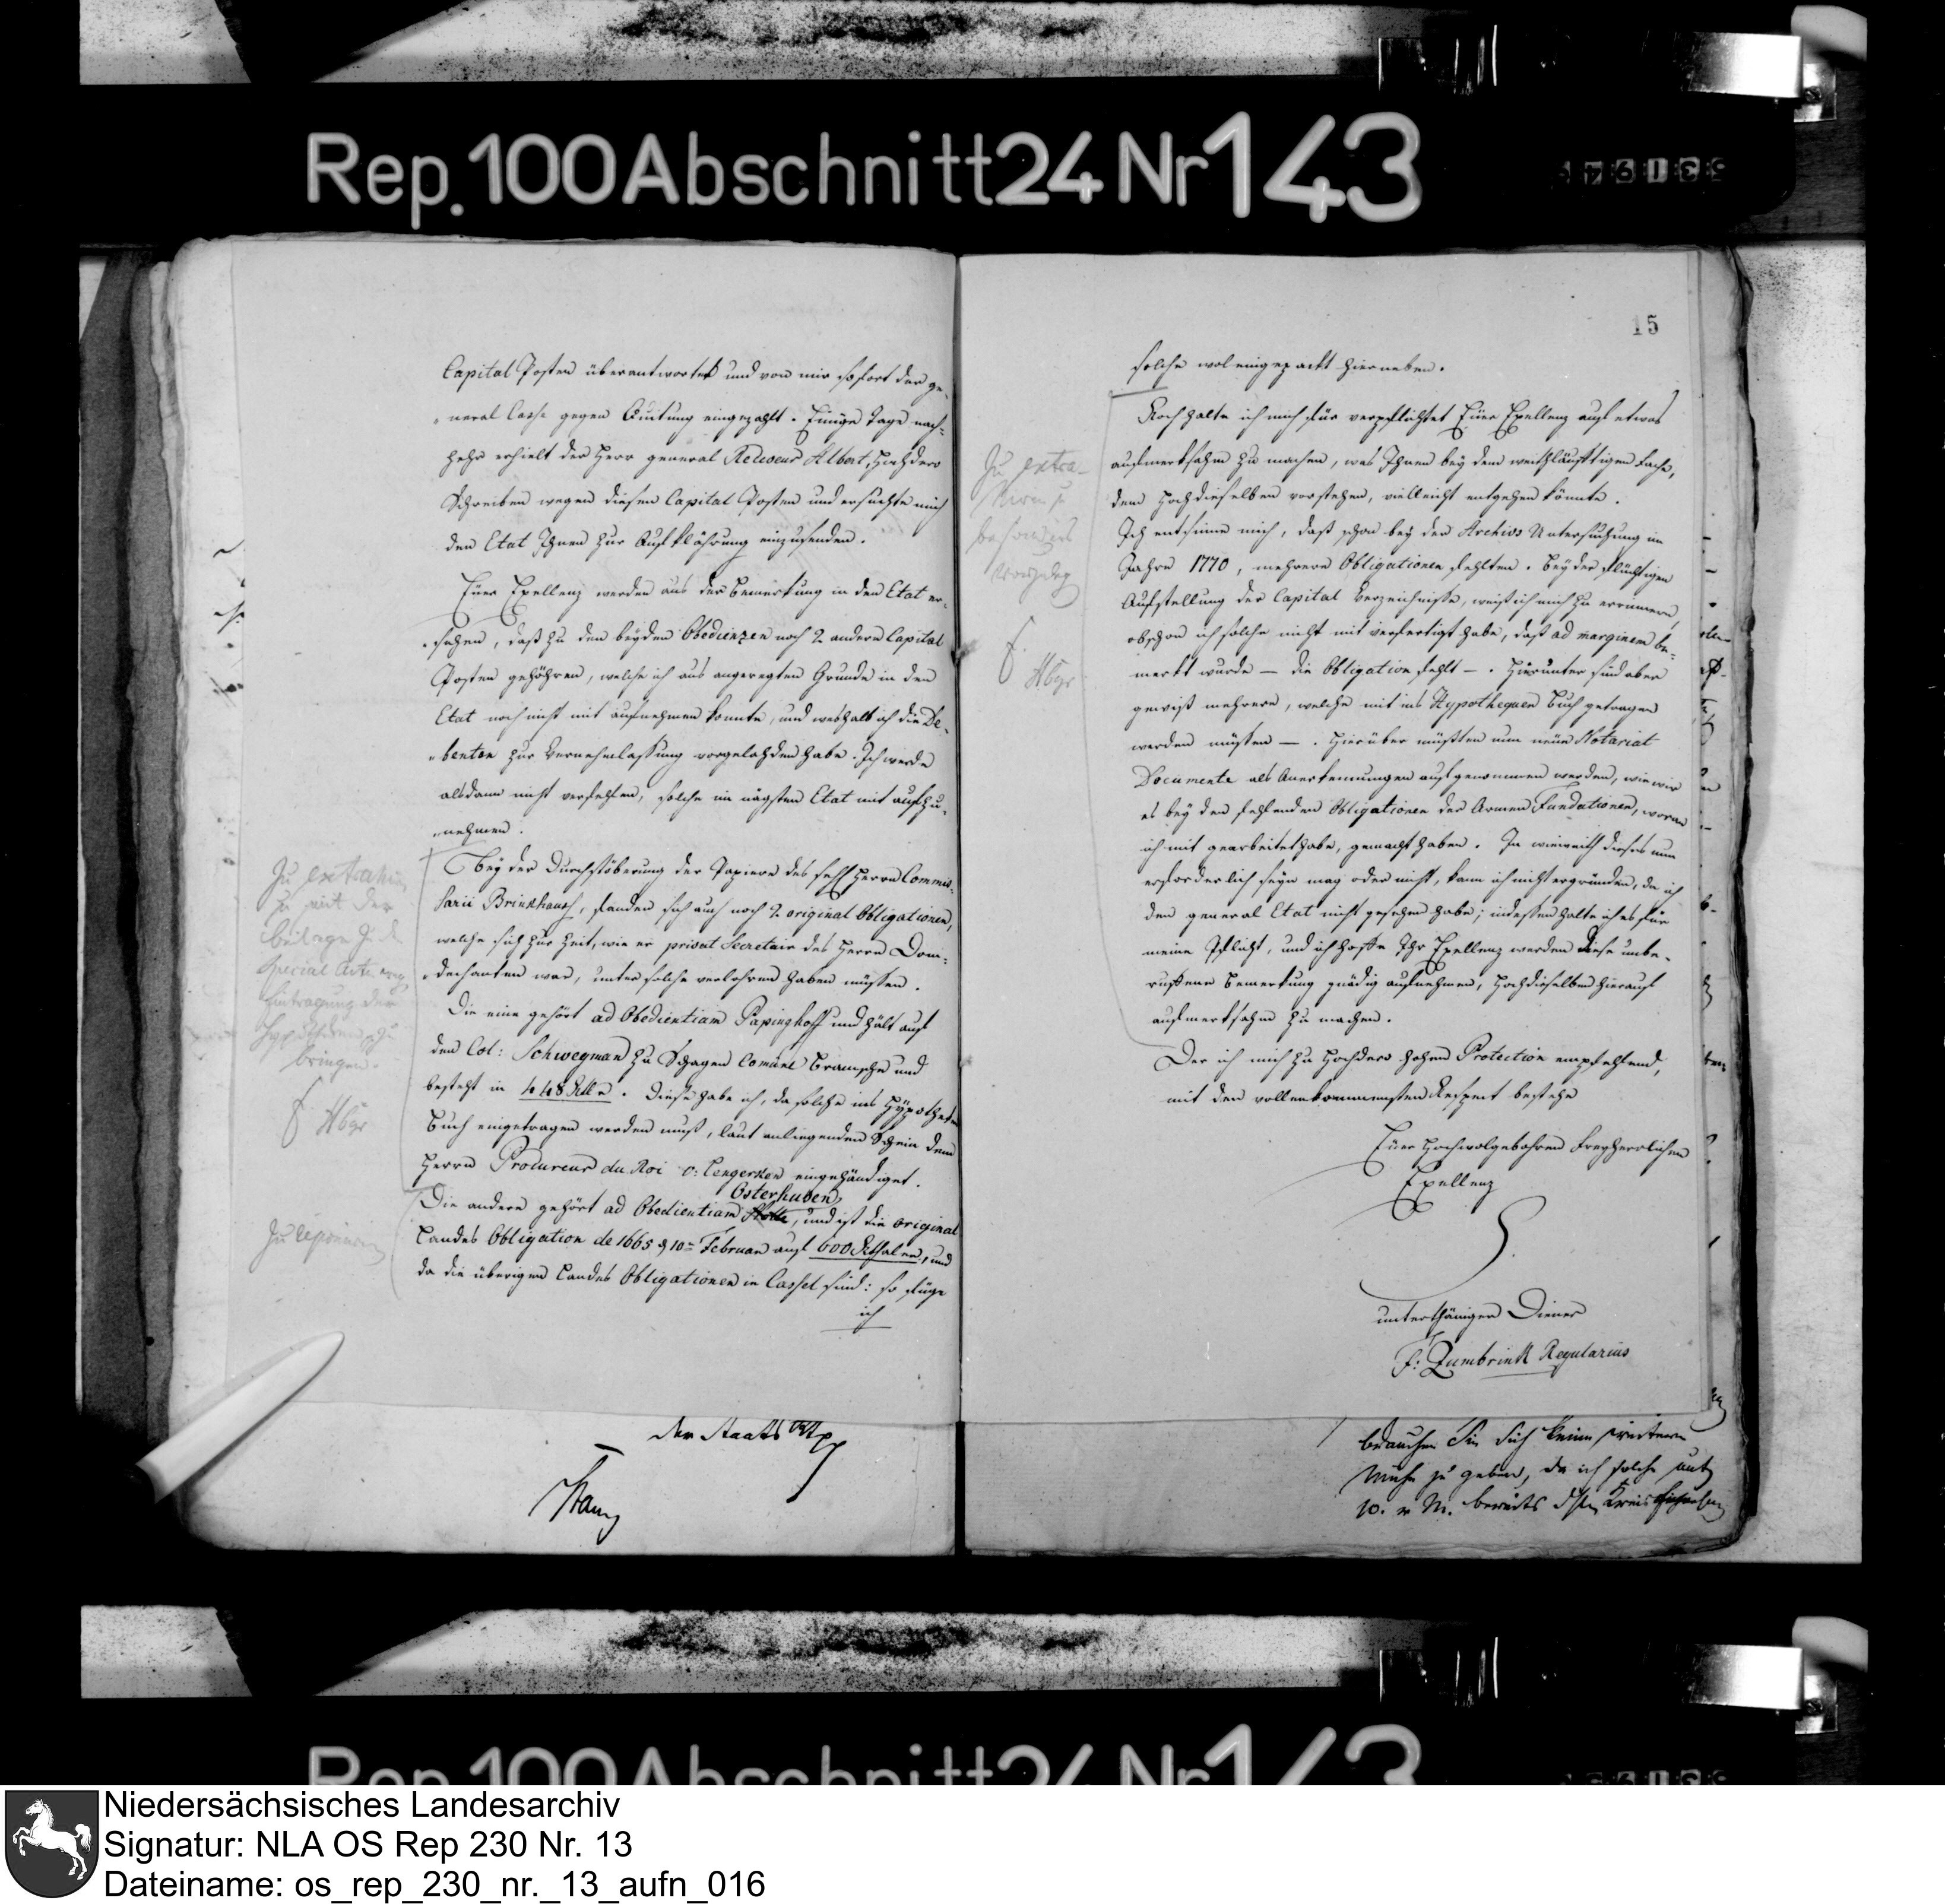 Rep. 100 Abschnitt 24 Nr 143
Capital Posten überantwortet und von mir sofort der ge-
neral Casse gegen Quitung eingezahlt. Einige Tage nach-
hehr erhielt der Herr general Receveur Albert, Hochdero
Schreiben wegen diesen Capital Posten und ersuchte mich
den Etat Ihnen zur Aufklährung einzusenden.
Euer Exellenz werden aus der Bemerkung in den Etat er-
sehen, daß zu den beyden Obedienzen noch 2 andere Capital
Posten gehöhren, welche ich aus angeregten Grunde in den
Etat noch nicht mit aufnehmen konnte, und weshalb ich die De-
benten zur Vernehmlassung vorgelahden habe. Ich werde
alsdann nicht verfehlen, solche im nägsten Etat mit aufzu-
nehmen.
Bey der Durchstöberung der Papiere des seel Herrn Commis-
sarii Brinkhausch, fanden sich auch noch 2 original Obligationen,
welche sich zur Zeit, wie er privat Secretair des Herrn Dom-
dechanten war, unter solche verlohren haben müssen.
Die eine gehört ad Obedientiam Papinghoff und hält auf
den Col: Schwegman zu Schagen Comüne Bramsche und
besteht in 448 Rtlr. Diese habe ich, da solche ins Hÿpotheken
Buch eingetragen werden muß, laut anliegenden Schein dem
Herrn Procureur du Roi v: Lengerken eingehändiget.
Osterhusen
Die andere gehört ad Obedientiam, und ist die original
Landes Obligation de 1665 d 10ten Februar auf 600 Rthaler, und
da die überigen Landes Obligationen in Cassel sind: so füge
ich
Zu extrahi
zu mit der
Beilage zu d
Special Acte weg
Eintragung der
Hypotheken zu
bringen.
Zu reponiren
der Staats
15
solche wol eingepackt hierneben.
Noch halte ich mich für verpflichtet Euer Exellenz auf etwas
aufmerksahm zu machen, was Ihnen bey dem weithläufttigen Fache,
dem Hochdieselben vorstehen, vielleicht entgehen könnte.
Ich entsinne mich, daß schon bey der Archivs Untersuchung im
Jahre 1770, mehrere Obligationen fehlten. Bey der flüchtigen
Aufstellung der Capital Verzeichnisse, weiß ich mich zu errinnern,
obschon ich solche nicht mit verfertigt habe, daß ad marginem be-
merkt wurde — die Obligation fehlt —. Hierunter sind aber
gewiß mehrere, welche mit ins Hypothequen Buch getragen
werden müssen —. Hierüber müßten nun neüe Notariat
Documente als Anerkennungen aufgenommen werden, wie wir
es bey den fehlenden Obligationen der Armen Fundationen, woran
ich mit gearbeitet habe, gemacht haben. In wieweith dieses nun
erforderlich seyn mag oder nicht, kann ich nicht ergründen, da ich
den general Etat nicht gesehen habe; indessen halte ich es für
meine Pflicht, und ich hoffe Ihr Exellenz werden diese unbe-
ruffene Bemerkung gnädig aufnehmen, Hochdieselben hierauf
aufmerksahm zu machen.
Der ich mich zu Hochdero hohen Protection empfehlend,
mit den vollenkommensten Respect bestehe
Euer Hochwolgebohren Freyherrlichen
Exellenz
unterthäniger Diener
F: Zumbrink Regularius
Zu extra-
besonders
brauchen Sie sich keine weitere
Mühe zu geben, da ich solche unt
10. v. M. bereits
Niedersächsisches Landesarchiv
Signatur: NLA OS Rep 230 Nr. 13
Dateiname: os_rep_230_nr._13_aufn_016